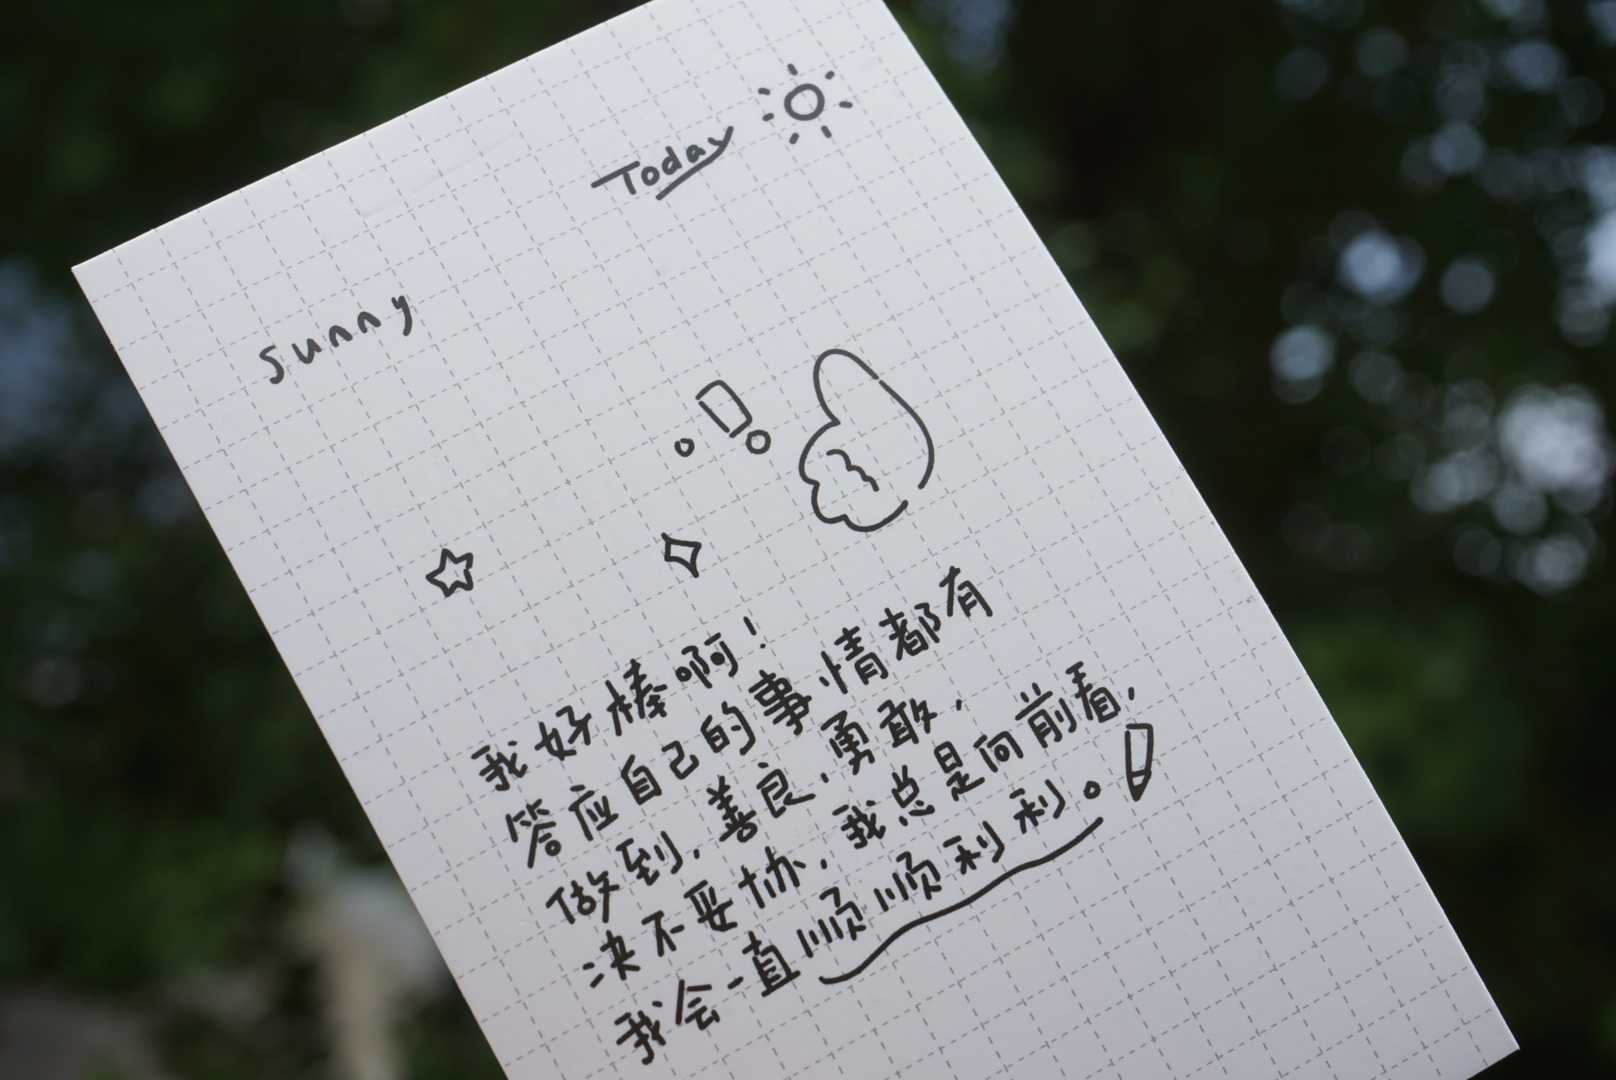 Today
sunny
我好棒啊！
答应自己的事情都有
做到，善良，勇敢，
决不妥协，我总是向前看，
我会一直顺顺利利。